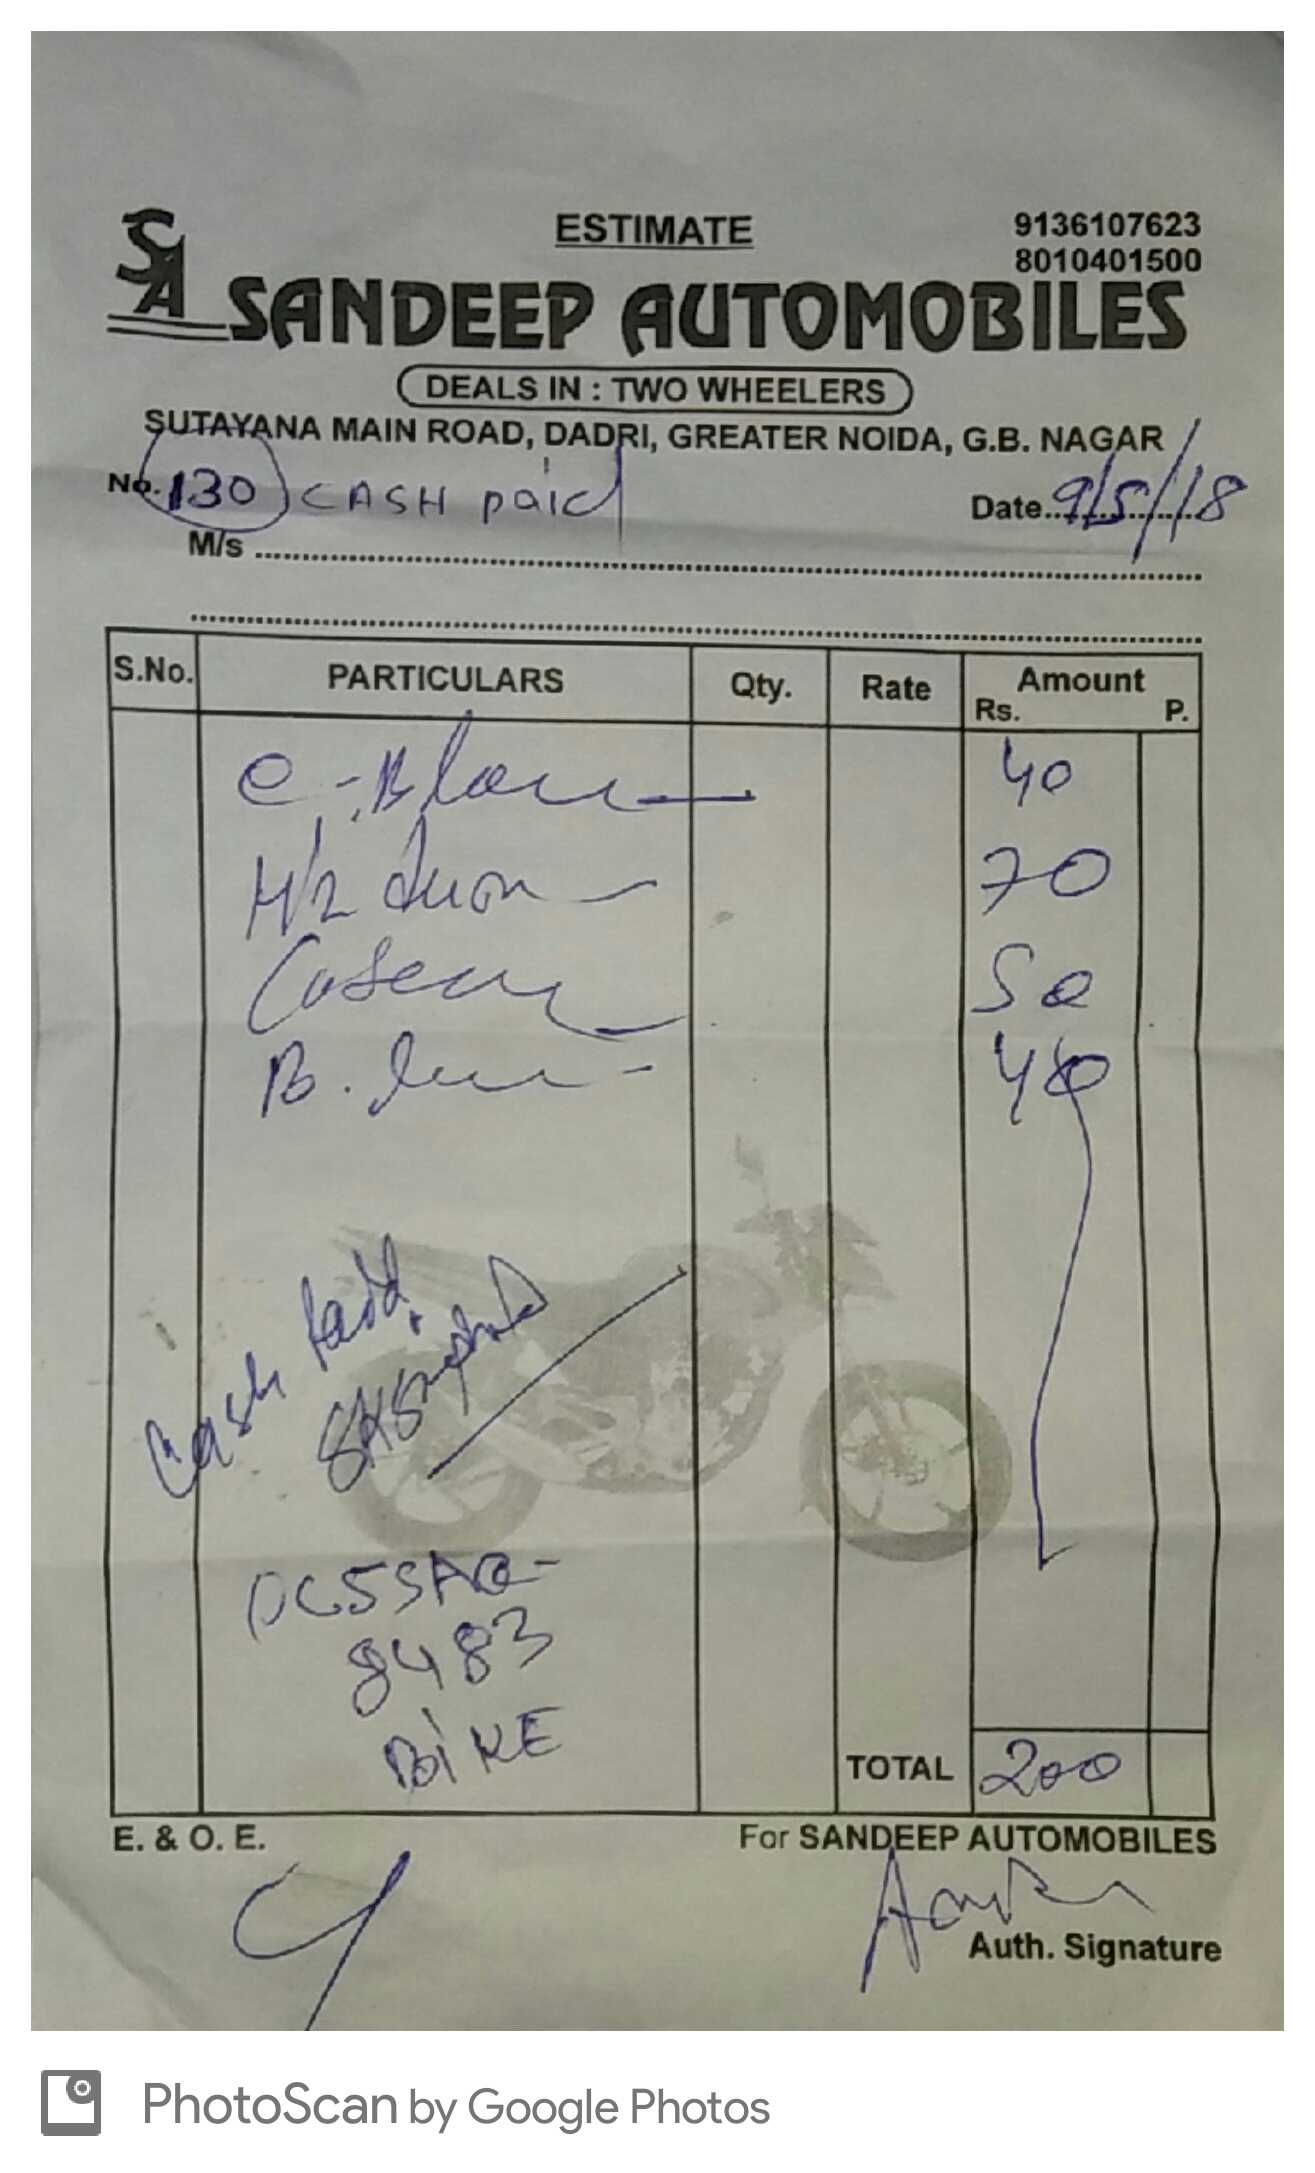 ESTIMATE
9136107623
8010401500
SA SANDEEP AUTOMOBILES
DEALS IN : TWO WHEELERS
SUTAYANA MAIN ROAD, DADRI, GREATER NOIDA, G.B. NAGAR
No. 130 CASH paid
Date 9/5/18
M/s
S.No. PARTICULARS Qty. Rate Amount
Rs. P.
40
70
50
B. 40
Cash Paid
8483
BIKE
TOTAL 200
E. & O. E.
For SANDEEP AUTOMOBILES
Auth. Signature
PhotoScan by Google Photos